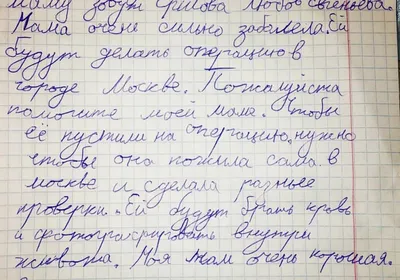 маму зовут Грикова Любов Евгеньевна.
Мама очень сильно забалела. Ей
будут делать операцию в
городе Москве. Пожалуйста
памогите моей мама. Чтобы
её пустили на операцию, нужно
чтобы она пожила сама в
москве и сделала разные
проверки. Ей будут брать кровь
и фотографировать внутри
живота. Моя мам очень хорошая.